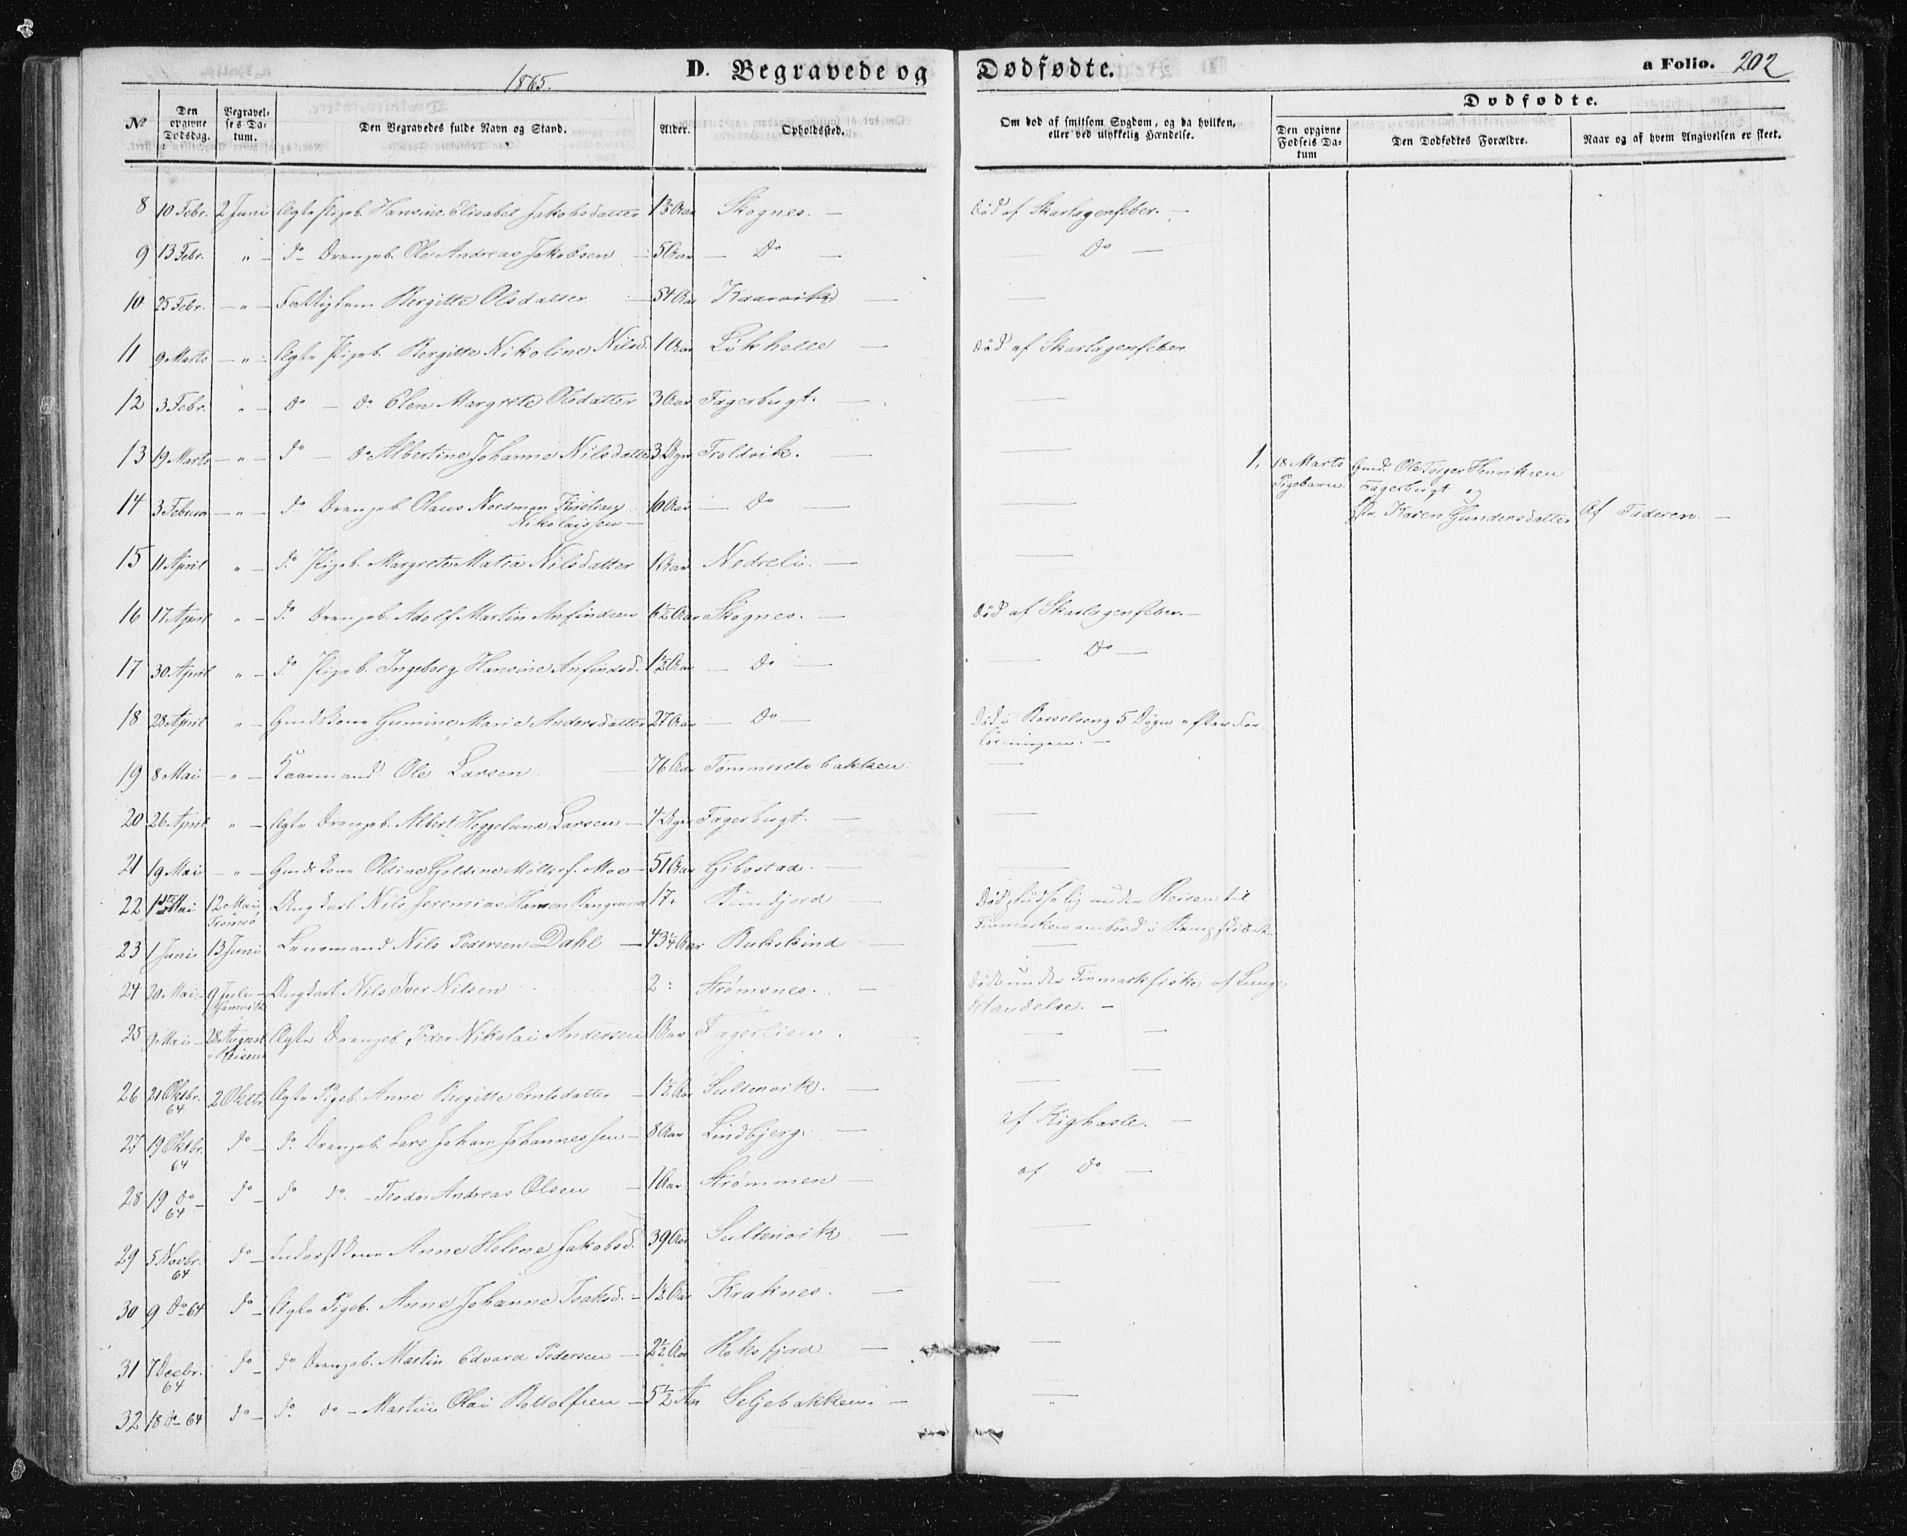 1865.
D. Begravede og Dødfødte.
a Folio. 202
No
Den opgivne Dødsdag.
Begravelses Datum.
Den Begravedes fulde Navn og Stand.
Alder.
Opholdssted.
Om død af smitsom Sygdom, og da hvilken, eller ved ulykkelig Hændelse.
Dødfødte.
Den opgivne Fødsels Datum
Den Dødfødtes Forældre.
Naar og af hvem Angivelsen er skeet.
8 10 Febr. 2 Juni Ægte Pigeb. Hansine Elisabet Jakobsdatter 1½ Aar Skognes. — Død af Skarlagenfeber. —
9 13 Febr. " — do Drengeb. Ole Andreas Jakobsen — 5 Aar — Do — — Do —
10 25 Febr. — " — Bergitte Olsdatter — 54 Aar Kaarvik — —
11 9 Marts — " — Ægte Pigeb. Bergitte Nikoline Nilsd. 1 Aar Løkhelle — Død af Skarlagenfeber
12 3 Febr. " — do — do Elen Margrete Olsdatter 3 Aar Fagerbugt. — —
13 19 Marts — " — do — do Albertine Johanne Nilsdatter 3 Dgn Troldvik. — —
1. 18 Marts Pigebarn Gmd. Ole Torger Henriksen
Fagerbugt og
Karen Gundersdatter Af Faderen. —
14 3 Februar — " — do Drengeb. Olaus Nordman Kristian
Nikolaissen — Aar — Do — —
15 11 April " — do Pigeb. Margrete Matea Nilsdatter 1 Aar Nedreli. — —
16 17 April " — do Drengeb. Adolf Martin Anfindsen 6½ Aar Skognes. — Død af Skarlagenfeber. —
17 30 April " — do Pigeb. Ingeborg Hansine Anfindsd. 1½ Aar — Do — — Do —
18 28 April " — Gmdskone Gumine Marie Andersdatter 27 Aar — Do — Død i Barselseng 5 Døgn efter For-
løsningen. —
19 8 Mai — " — Kaarmand Ole Larsen — 76 Aar Tømmerelvbakken —
20 26 April " — Ægte Drengeb. Albert Heggelund Larsen — 4 Dgn Fagerbugt. — —
21 19 Mai — " — Gmdskone Oldine Møller f. Moe — 51 Aar Gibostad. — —
22 Mai 12 Mai Tromsø Ungkarl Nils Jeremias Hansen 17. — Død under Reisen til
Finmarken ombord i
23 1 Juni 13 Juni Lensmand Nils Pedersen Dahl — 43¼ Aar Bukskind — —
24 20 Mai 9 Juli Ungkarl Nils Iver Nilsen 2 Strømsnes. — Døde under Finmarkfiske af Lunge-
betændelse. —
25 9 Mai — 28 August Reisen Ægte Drengeb. Peder Nikolai Andersen 1 Aar Fagerlien — —
26 21 Oktbr. 64 2 Oktbr Ægte Pigeb. Anne Bergitte — 1½ Aar Sultenvik. — —
27 19 Oktbr. 64 do — do Drengeb. Lars Johan Johannessen — 8 Aar Lindbjerg. — af Kighoste. —
28 19 do 64 do — do do. — Andreas Olsen — 1 Aar Strømmen — af Do —
29 5 Novbr. 64 do — Anne Helene Jakobsd. 39 Aar Sultenvik — —
30 9 do 64 do — Ægte Pigeb. Anne Johanne Isaksd. — 1½ Aar Kraknes. — —
31 7 Decbr. 64 do — do Drengeb. Martin Edvard Pedersen — 2½ Aar Roksfjord — —
32 18 do 64 do — do. do — Martin Olai Bottolfsen — 5½ Aar Seljebakken. — "